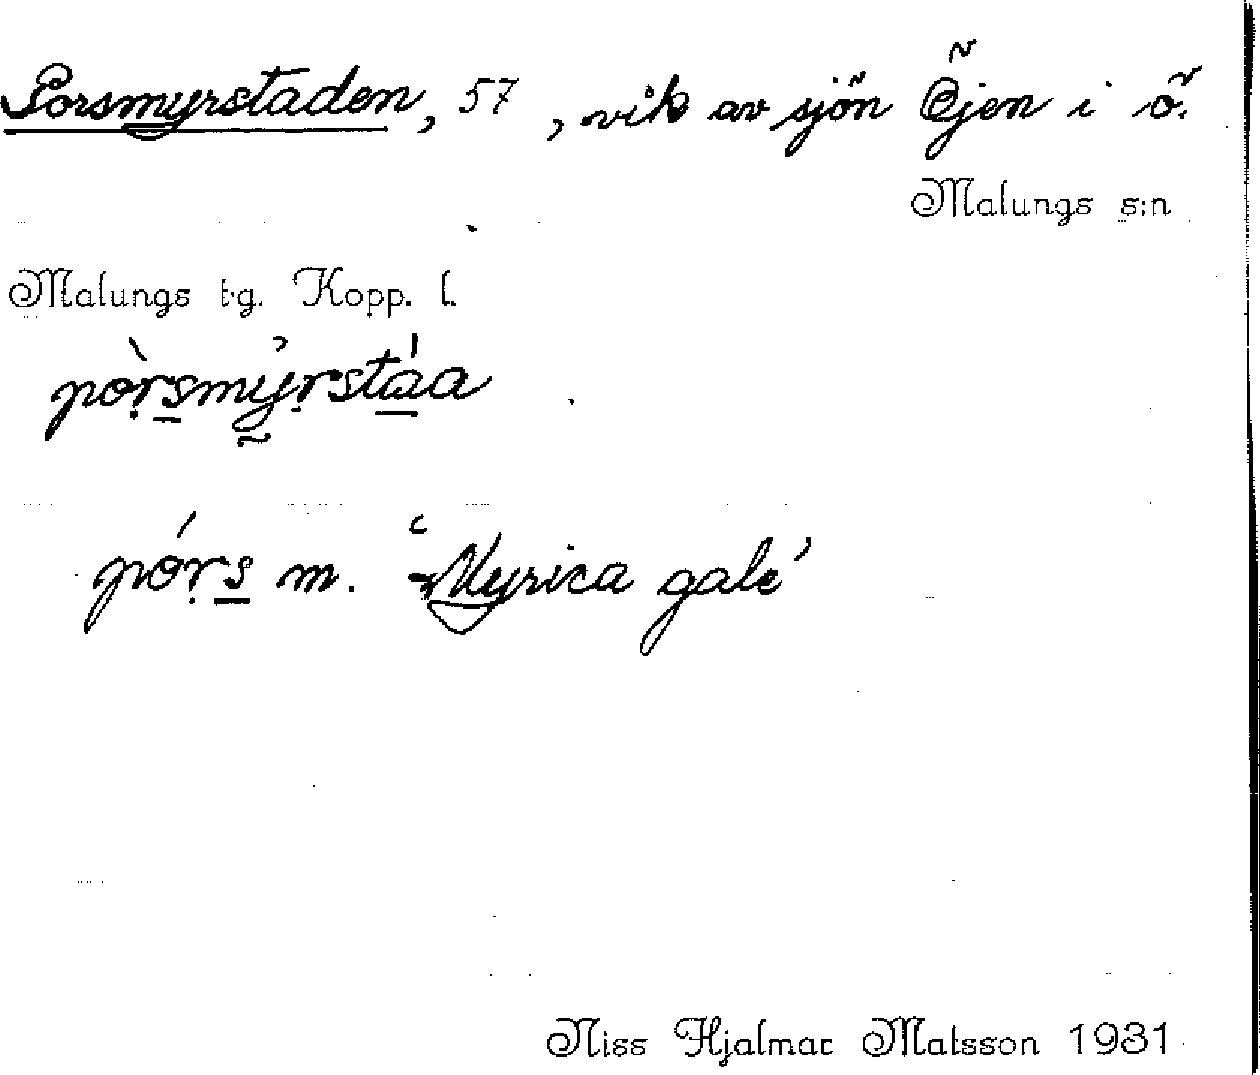 Porsmyrstaden, 57, vik av sjön Öjen i ö.
Malungs s:n
Malungs tg. Kopp. l.
pòrsmýrstáa
pórs m. 'Myrica gale'
Niss Hjalmar Matsson 1931